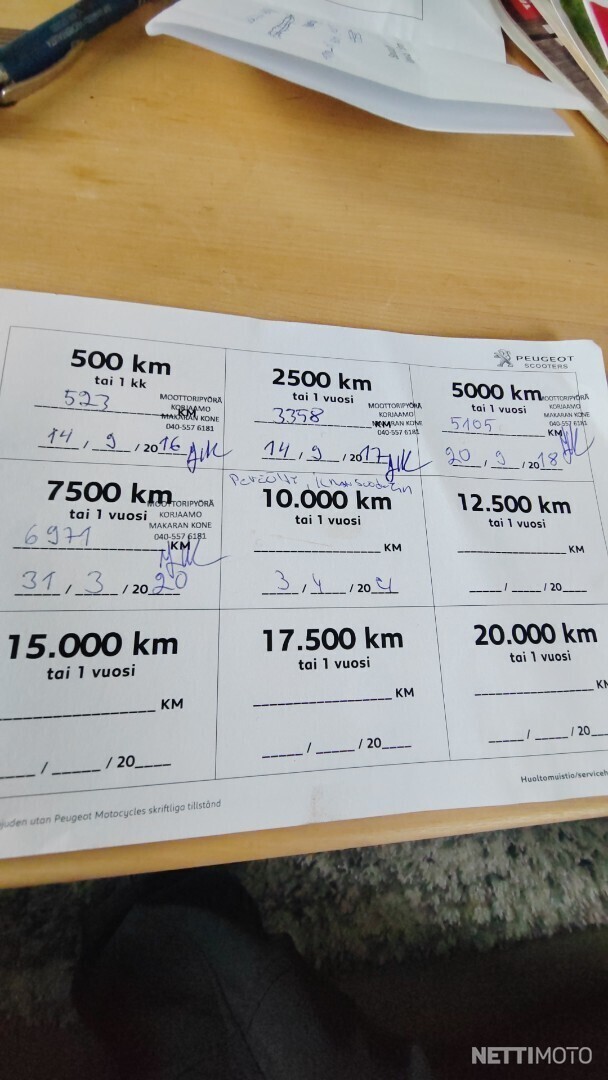 PEUGEOT
SCOOTERS
500 km
tai 1 kk
523 KM
MOOTTORIPYÖRÄ
KORJAAMO
MAKARAN KONE
040-557 6181
14 / 9 / 2016
2500 km
tai 1 vuosi
3358 KM
MOOTTORIPYÖRÄ
KORJAAMO
MAKARAN KONE
040-557 6181
14 / 9 / 2017
5000 km
tai 1 vuosi
5105 KM
MOOTTORIPYÖRÄ
KORJAAMO
MAKARAN KONE
040-557 6181
20 / 9 / 2018
7500 km
tai 1 vuosi
6971 KM
MOOTTORIPYÖRÄ
KORJAAMO
MAKARAN KONE
040-557 6181
31 / 3 / 2020
10.000 km
tai 1 vuosi
KM
3 / 4 / 20
12.500 km
tai 1 vuosi
KM
/ / 20
15.000 km
tai 1 vuosi
KM
/ / 20
17.500 km
tai 1 vuosi
KM
/ / 20
20.000 km
tai 1 vuosi
KM
/ / 20
juden utan Peugeot Motocycles skriftliga tillstånd
Huoltomuistio/serviceh
NETTIMOTO